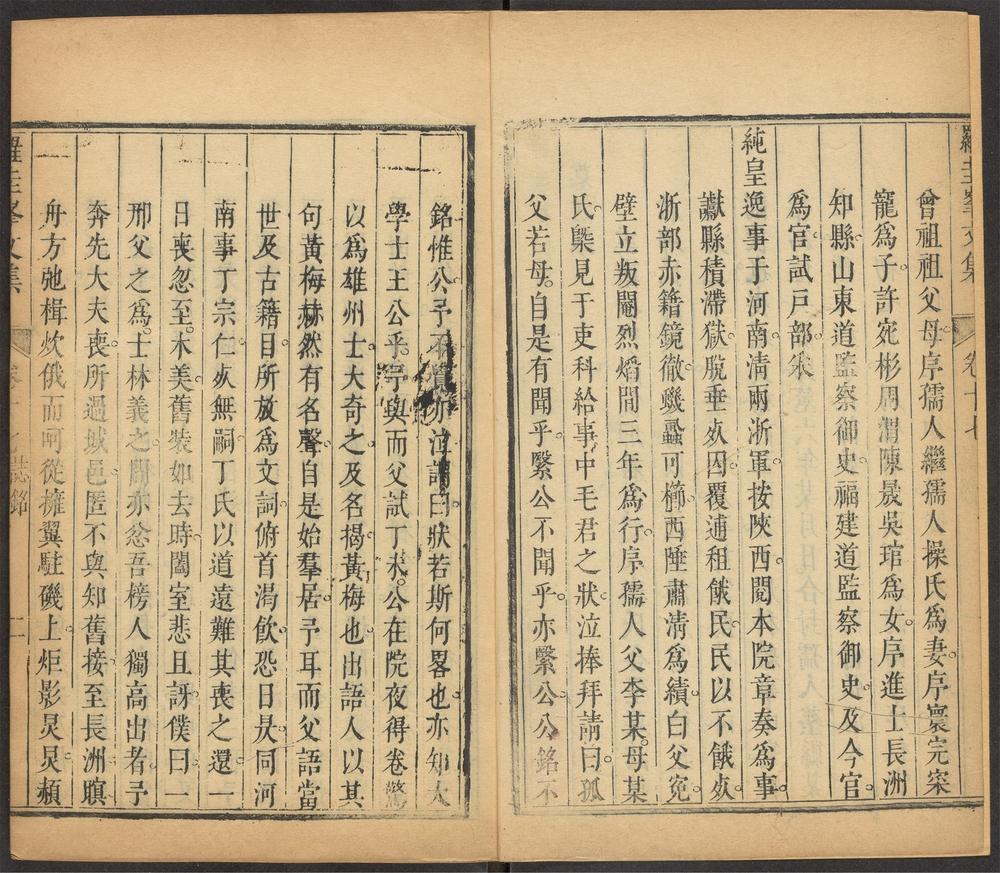 曾祖祖父母序孺人繼孺人操氏爲妻序寰完宷
寵爲子許宛彬周渭陳晟吳琯爲女序進士長洲
知縣山東道監察御史福建道監察御史及今官
爲官試戸部
純皇逸事于河南清兩浙軍按陝西閱本院章奏爲事
讞縣積滯獄脫垂㱔囚覆逋租餓民民以不餓㱔
浙部赤籍鏡徹蟣蝨可櫛西陲肅清爲績白父寃
壁立叛閹烈熖間三年爲行序孺人父李某母某
氏槩見于吏科給事中毛君之狀泣捧拜請曰孤
父若母自是有聞乎繄公不聞乎亦繄公公銘不
銘惟公予不覺亦泣謂曰狀若斯何畧也亦知大
學士王公乎予與而父試丁未公在院夜得卷驚
以爲雄州士大奇之及名揭黃梅也出語人以其
句黃梅赫然有名聲自是始羣居予耳而父語當
世及古籍目所放爲文詞俯首渴飲恐日昃同河
南事丁宗仁㱔無嗣丁氏以道遠難其喪之還一
日喪忽至木美舊装如去時闔室悲且訝僕曰一
邢父之爲士林義之閒亦忿吾榜人獨高出者予
奔先大夫喪所過城邑匿不與知舊接至長洲瞑
舟方弛楫炊俄而呵從擁翼駐磯上炬影炅炅頮
羅圭峯文集
卷十七
誌銘
二